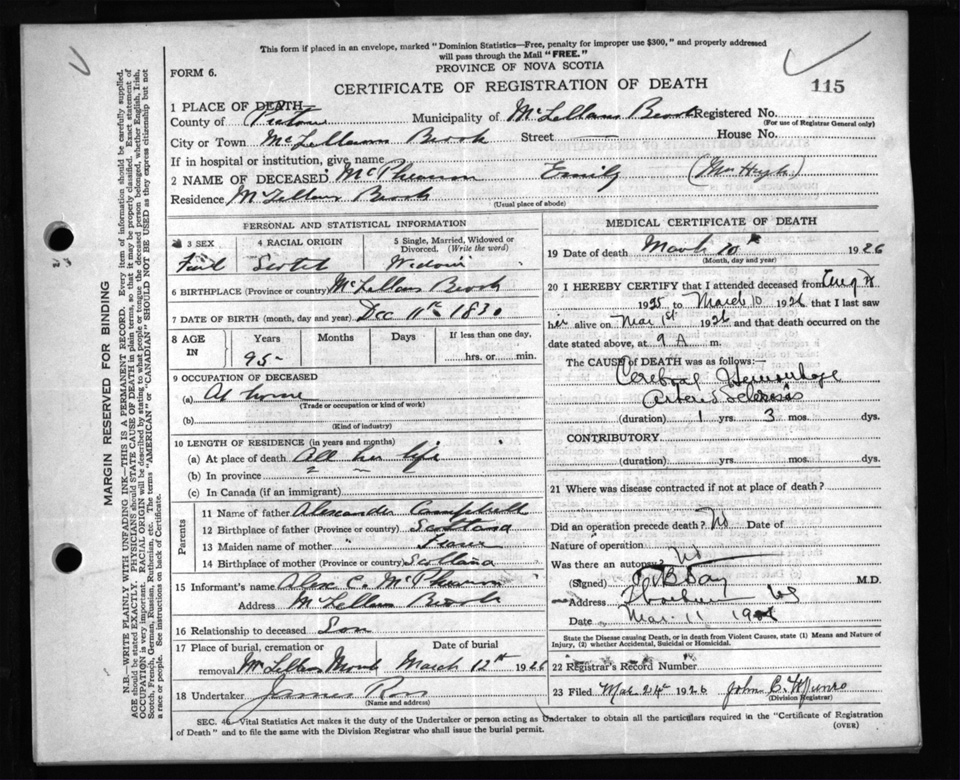 This form if placed in an envelope, marked "Dominion Statistics—Free, penalty for improper use $300," and properly addressed
will pass through the Mail "FREE."
PROVINCE OF NOVA SCOTIA
FORM 6.
CERTIFICATE OF REGISTRATION OF DEATH
115
1 PLACE OF DEATH
County of Pictou Municipality of McLellans Brook Registered No.
(For use of Registrar General only)
City or Town McLellans Brook Street House No.
If in hospital or institution, give name
2 NAME OF DECEASED McPherson Emily (Mrs Hugh)
Residence McLellans Brook
(Usual place of abode)
PERSONAL AND STATISTICAL INFORMATION
3 SEX 4 RACIAL ORIGIN 5 Single, Married, Widowed or
Divorced. (Write the word)
Scotch Widow
6 BIRTHPLACE (Province or country) McLellans Brook
7 DATE OF BIRTH (month, day and year) Dec 11th 1830
8 AGE IN Years Months Days If less than one day,
95 hrs. or min.
9 OCCUPATION OF DECEASED
(a) At home
(Trade or occupation or kind of work)
(b)
(Kind of industry)
10 LENGTH OF RESIDENCE (in years and months)
(a) At place of death All her life
(b) In province
(c) In Canada (if an immigrant)
Parents
11 Name of father Alexander Campbell
12 Birthplace of father (Province or country) Scotland
13 Maiden name of mother " Fraser
14 Birthplace of mother (Province or country) Scotland
15 Informant's name Alex C. McPherson
Address McLellans Brook
16 Relationship to deceased Son
17 Place of burial, cremation or Date of burial
removal McLellans March 12th 1926
18 Undertaker James Ross
(Name and address)
MEDICAL CERTIFICATE OF DEATH
19 Date of death March 10 1926
(Month, day and year)
20 I HEREBY CERTIFY that I attended deceased from Aug
1925 to March 10 1926 that I last saw
her alive on Mar 1st 1926 and that death occurred on
date stated above, at 9 A m.
The CAUSE of DEATH was as follows:
Cerebral Hemorrhage
Arterio Sclerosis
(duration) 1 yrs. 3 mos. dys.
CONTRIBUTORY
(duration) yrs. mos. dys.
21 Where was disease contracted if not at place of death?
Did an operation precede death? No Date of
Nature of operation
Was there an autopsy? No
(Signed) Day M.D.
Address Thorburn NS
Date Mar. 11 1926
State the Disease causing Death, or in death from Violent Causes, state (1) Means and Nature of
Injury, (2) whether Accidental, Suicidal or Homicidal.
22 Registrar's Record Number
23 Filed Mar 24th 1926 John C. Munro
(Division Registrar)
SEC. 46. Vital Statistics Act makes it the duty of the Undertaker or person acting as Undertaker to obtain all the particulars required in the "Certificate of Registration
of Death" and to file the same with the Division Registrar who shall issue the burial permit.
(OVER)
MARGIN RESERVED FOR BINDING
N.B.—WRITE PLAINLY WITH UNFADING INK—THIS IS A PERMANENT RECORD. Every item of information should be carefully supplied.
AGE should be stated EXACTLY. PHYSICIANS should STATE CAUSE OF DEATH in plain terms, so that it may be properly classified. Exact statement of
OCCUPATION is very important. RACIAL ORIGIN will be described by stating to what people or tongue the deceased person belonged, whether English, Irish,
Scotch, French, German, Russian, Ruthenian, etc. The terms "AMERICAN" or "CANADIAN" SHOULD NOT BE USED as they express citizenship but not
a race or people. See instructions on back of Certificate.